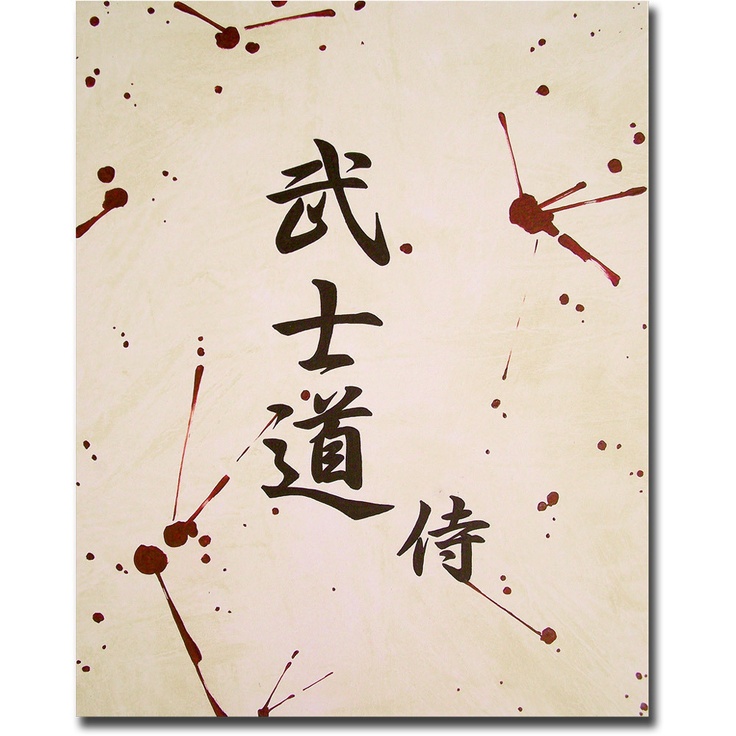 武士道
侍